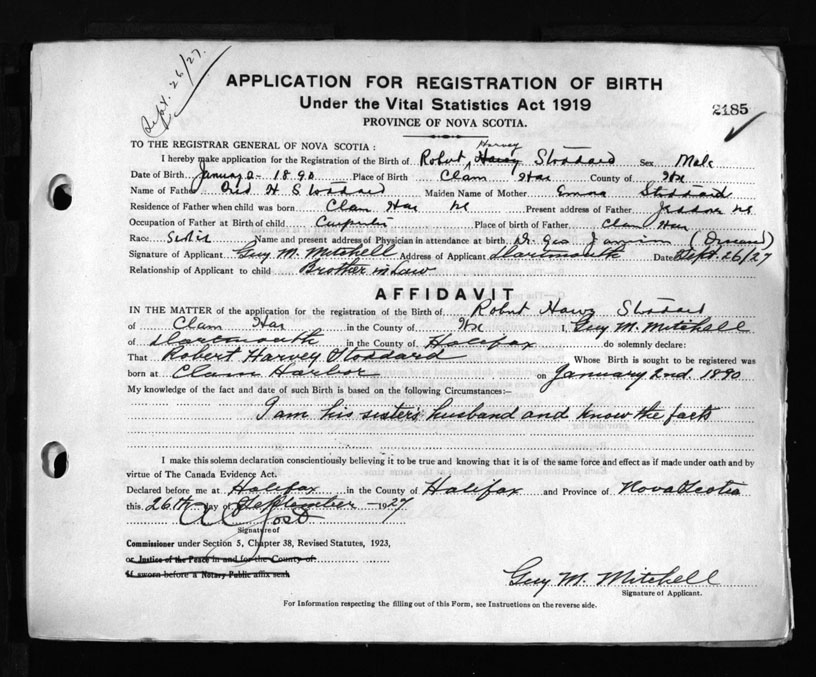 Sept. 26/27.
APPLICATION FOR REGISTRATION OF BIRTH
Under the Vital Statistics Act 1919
2185
PROVINCE OF NOVA SCOTIA.
TO THE REGISTRAR GENERAL OF NOVA SCOTIA :
Harvey
I hereby make application for the Registration of the Birth of Robert Harvy Stoddard Sex Male
Date of Birth January 2 - 1890 Place of Birth Clam Har County of Hx
Name of Father Fred H Stoddard Maiden Name of Mother Emma Stoddard
Residence of Father when child was born Clam Har NS Present address of Father Jeddore NS
Occupation of Father at Birth of child Carpenter Place of birth of Father Clam Har
Race Name and present address of Physician in attendance at birth Dr. Geo
Signature of Applicant Guy M. Mitchell Address of Applicant Dartmouth Date Sept. 26/27
Relationship of Applicant to child Brother in Law
AFFIDAVIT
IN THE MATTER of the application for the registration of the Birth of Robert Harvy Stoddard
of Clam Har in the County of Hx I, Guy M. Mitchell
of Dartmouth in the County of Halifax do solemnly declare:
That Robert Harvey Stoddard Whose Birth is sought to be registered was
born at Clam Harbor on January 2nd. 1890
My knowledge of the fact and date of such Birth is based on the following Circumstances:—
I am his sister's husband and know the facts
I make this solemn declaration conscientiously believing it to be true and knowing that it is of the same force and effect as if made under oath and by
virtue of The Canada Evidence Act.
Declared before me at Halifax in the County of Halifax and Province of Nova Scotia
this 26th day of September 1927
Signature of
Commissioner under Section 5, Chapter 38, Revised Statutes, 1923,
or Justice of the Peace in and for the County of
If sworn before a Notary Public affix seal
Guy M. Mitchell
Signature of Applicant.
For Information respecting the filling out of this Form, see Instructions on the reverse side.